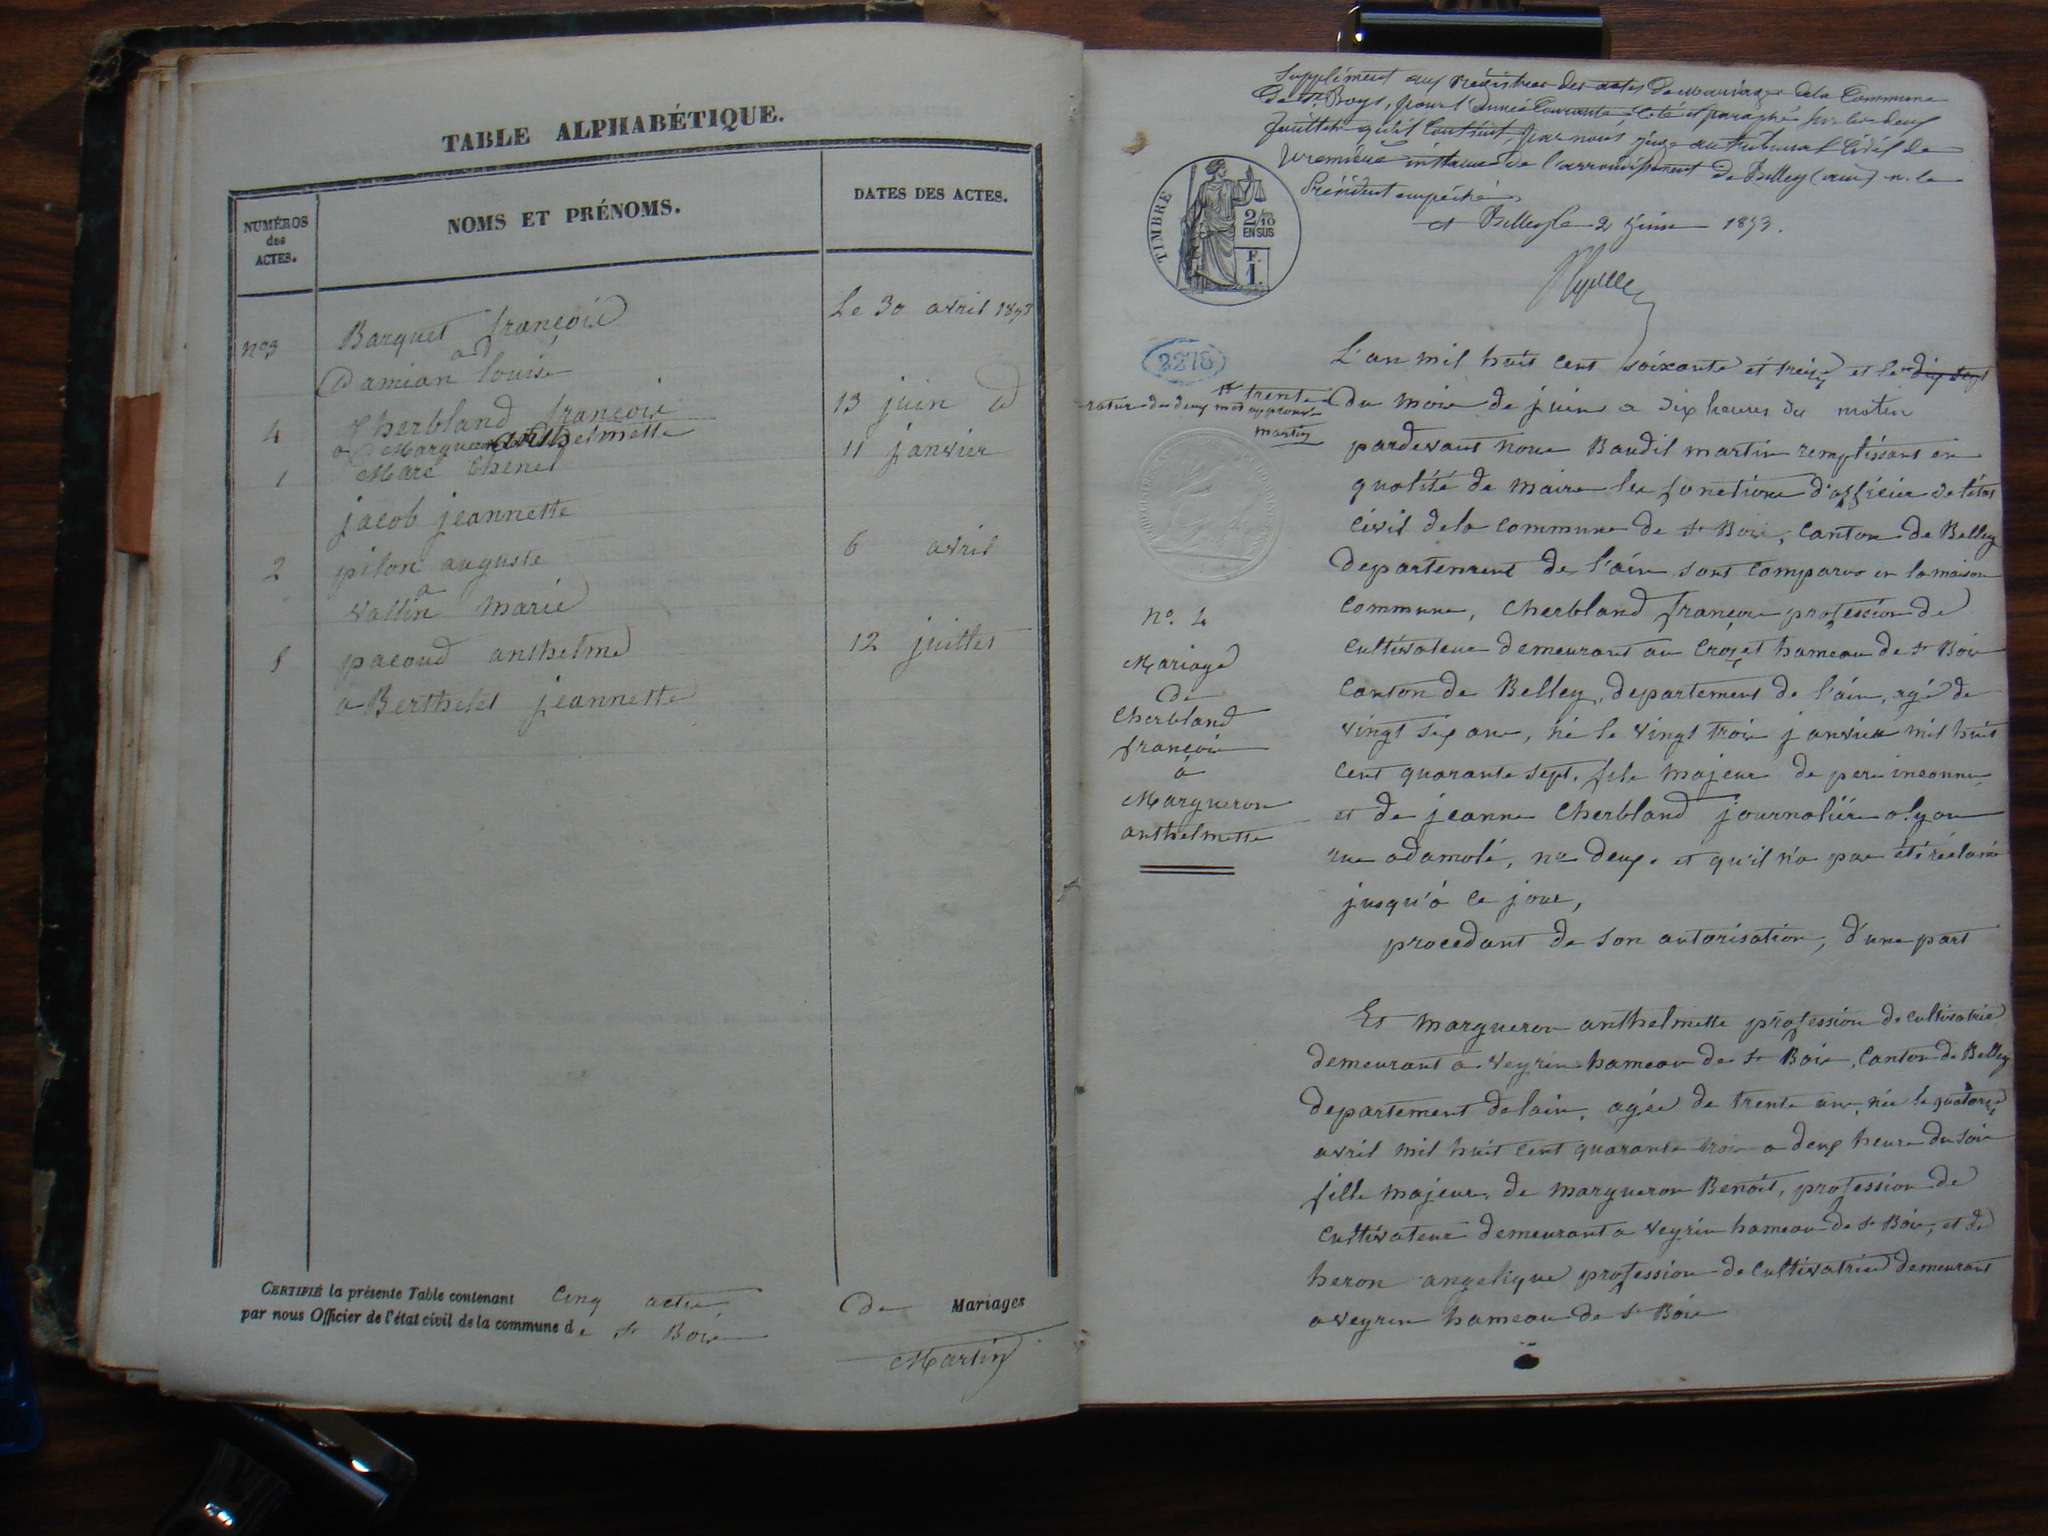 TABLE ALPHABÉTIQUE.
NUMÉROS des ACTES.
NOMS ET PRÉNOMS.
DATES DES ACTES.
no 3 Barquet françois Le 30 avril 1873
a
Damian louise
4 Cherbland françois 13 juin d
a Margueron anthelmette
1 Mare Chene 11 janvier
jacob jeannette
2 pilon auguste 6 avril
a
Vallin marie
5 pacoud anthelme 12 juillet
a Berthelet jeannette
CERTIFIÉ la présente Table contenant cinq actes de Mariages
par nous Officier de l'état civil de la commune de St Bois
Martin
Supplément aux Registres des actes de mariages de la Commune
de St Boys, pour l'année courante, coté et paraphé sur les deux
feuillets qu'il contient, par nous juge au tribunal civil de
première instance de l'arrondissement de Belley (ain) m. le
Président empêché
à Belley le 2 juin 1873.
TIMBRE
2/10
EN SUS
F.
1.
2278
L'an mil huit cent soixante et treize et le dix sept
trente
rature de deux mots approuvée
Martin
du mois de juin a dix heures du matin
pardevant nous Baudil martin remplissant en
qualité de maire les fonctions d'officier de l'état
civil de la commune de St Bois, canton de Belley
departement de l'ain sont comparus en la maison
commune, Cherbland françois profession de
cultivateur demeurant au Crozet hameau de St Bois
canton de Belley, departement de l'ain, agé de
vingt six ans, né le vingt trois janvier mil huit
cent quarante sept, fils majeur de pere inconnu
et de jeanne Cherbland journalière a lyon
rue adamoli, no deux. et qu'il n'a pas été réclamé
jusqu'à ce jour,
procedant de son autorisation, d'une part
no. 4
Mariage
de
Cherbland
françois
à
Margueron
anthelmette
Et margueron anthelmette profession de cultivatrice
demeurant a veyrin hameau de St Bois, Canton de Belley
departement de lain, agée de trente ans, née le quatorze
avril mil huit cent quarante trois a deux heures du soir
fille majeure, de margueron Benoit, profession de
cultivateur demeurant a veyrin hameau de St Bois, et de
heron angelique profession de cultivatrice demeurant
a veyrin hameau de St Bois